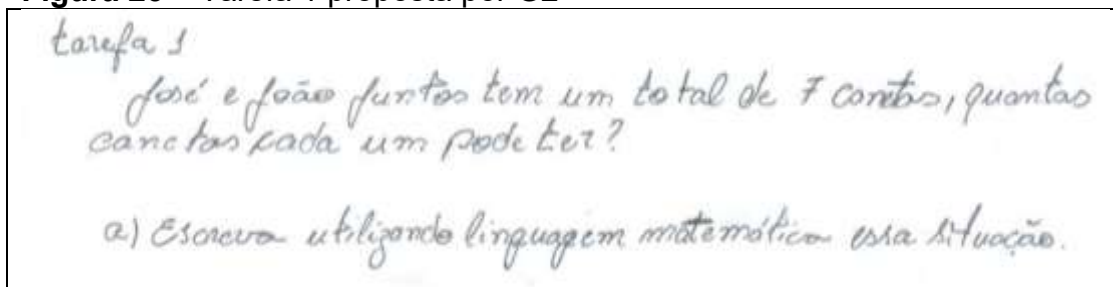 tarefa 1
José e João juntos tem um total de 7 canetas, quantas
canetas cada um pode ter?
a) Escreva utilizando linguagem matemática essa situação.